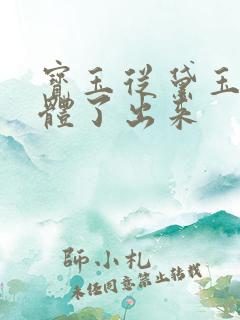 寶玉從黛玉
體了出来
師小札
未任同意禁止转载